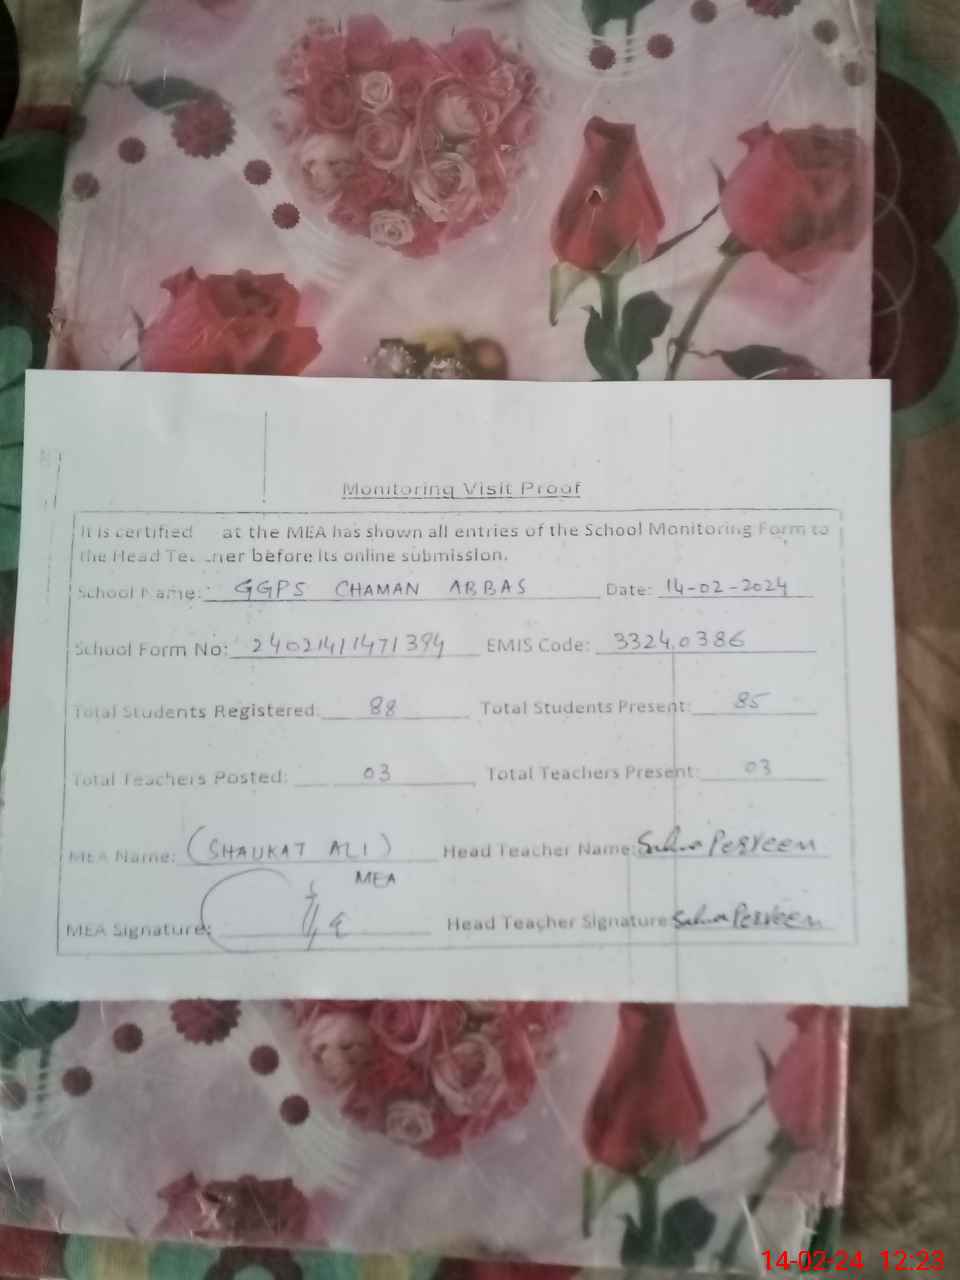 Monitoring Visit Proof
It is certified at the MEA has shown all entries of the School Monitoring Form to
the Head Te. .ner before its online submission.
School Name: GGPS CHAMAN ABBAS Date: 14-02-2024
School Form No: 24021411471394 EMIS Code: 33240386
Total Students Registered: 88 Total Students Present: 85
Total Teachers Posted: 03 Total Teachers Present: 03
MEA Name: (SHAUKAT ALI) Head Teacher Name: Perveen
MEA
MEA Signature: Head Teacher Signature Perveen
14-02-24 12:23